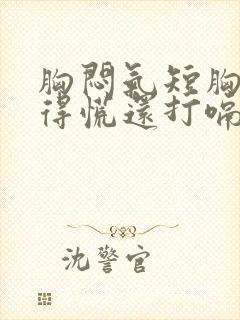 胸悶氣短胸
得慌還打嗝
沈警官